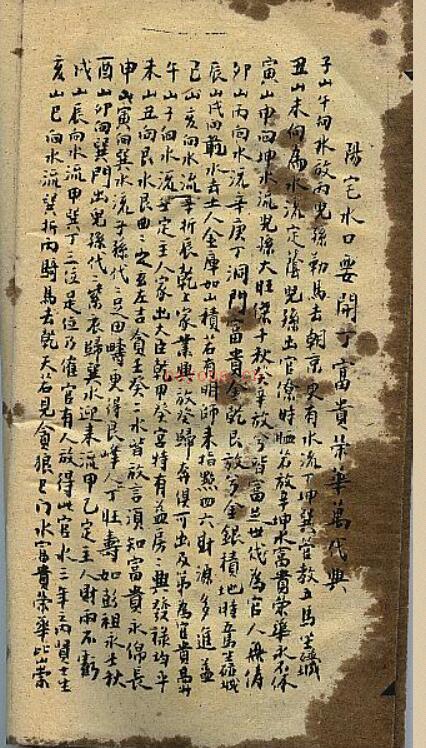 陽宅水口要開丁富貴荣華萬代興
子山午向水放丙兒孫勒馬去朝京更有水流丁坤巽管教五馬坐城
丑山未向為水流定蔭兒孫出官僚時師若放辛坤水富貴荣華永不休
寅山申向坤水流兒孫大旺傑千秋癸辛放兮皆富三世代為官人
卯山丙向水流辛庚丁洞門富貴全乾艮放兮金銀積地時五馬坐城
辰山戌向乾水去土人金庫如山積若有明師来指點四六財源多進益
巳山亥向水流辛折辰乾上家業興放癸歸奔俱可出及第為官貴萬
午山子向水流壬定主人家出大臣乾甲癸宮特有益房々興發禄均平
未山丑向艮水艮曲之玄左吉貪壬癸二水皆放言須知富貴永綿長
申山寅向巽水流子孫代々足田疇更得艮峰人丁旺壽如彭祖永千秋
酉山卯向巽門出兒孫代々紫衣歸巽水迎来流甲乙定主人財兩不虧
戌山辰向水流甲巽丁三位是位乃催官有人放得此官水三年兩賢士生
亥山巳向水流巽折丙騎馬去乾天若見貪狼上门水富貴荣華比山崇